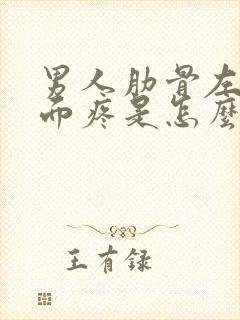 男人肋骨左
而疼是怎麼
王有録